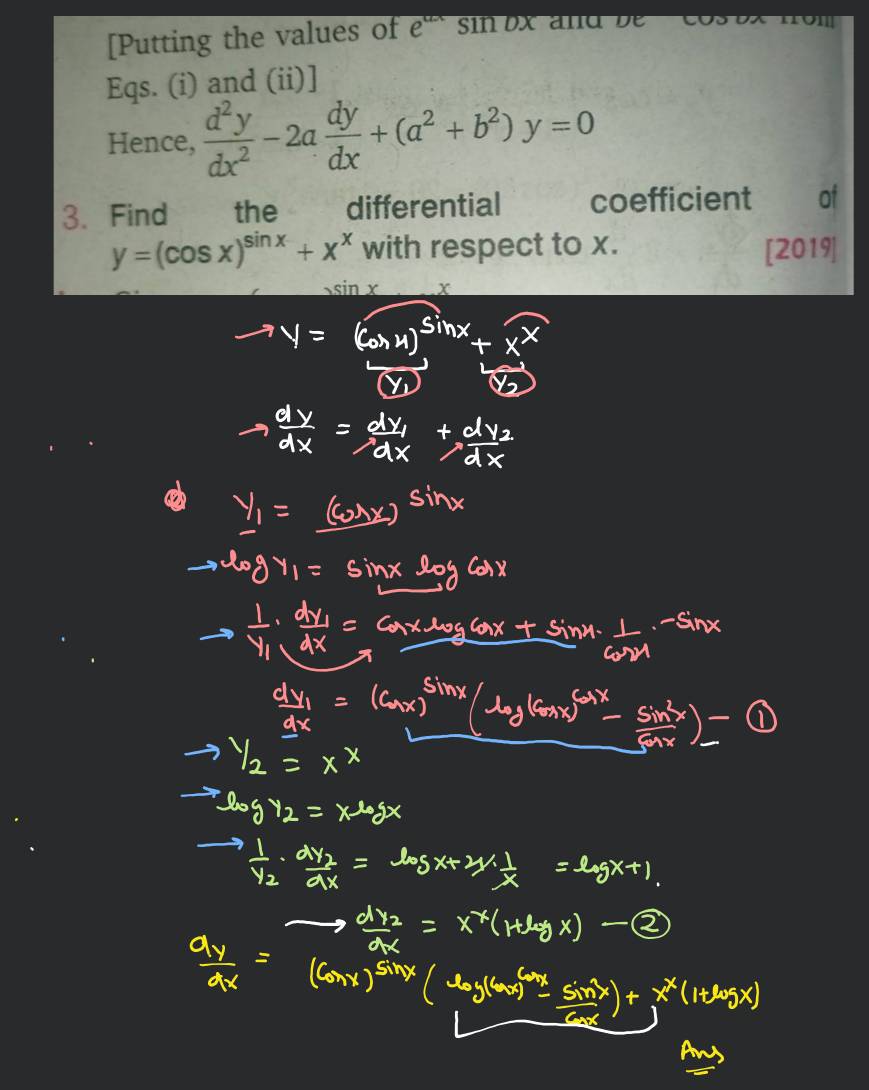 [Putting the values of e^{ax} sin bx and be cos bx from
Eqs. (i) and (ii)]
Hence, d²y/dx² − 2a dy/dx + (a² + b²) y = 0
3. Find the differential coefficient of
y = (cos x)^{sin x} + x^x with respect to x. [2019]
sin x x
→ y = (cos x)^{sin x} + x^x
y₁ y₂
→ dy/dx = dy₁/dx + dy₂/dx
y₁ = (cos x)^{sin x}
→ log y₁ = sin x log cos x
→ 1/y₁ · dy₁/dx = cos x log cos x + sin x · 1/cos x · −sin x
dy₁/dx = (cos x)^{sin x} (log (cos x)^{cos x} − sin²x/cos x) — ①
→ y₂ = x^x
→ log y₂ = x log x
→ 1/y₂ · dy₂/dx = log x + x · 1/x = log x + 1.
→ dy₂/dx = x^x (1 + log x) — ②
dy/dx = (cos x)^{sin x} ( log (cos x)^{cos x} − sin²x/cos x ) + x^x (1 + log x)
Ans